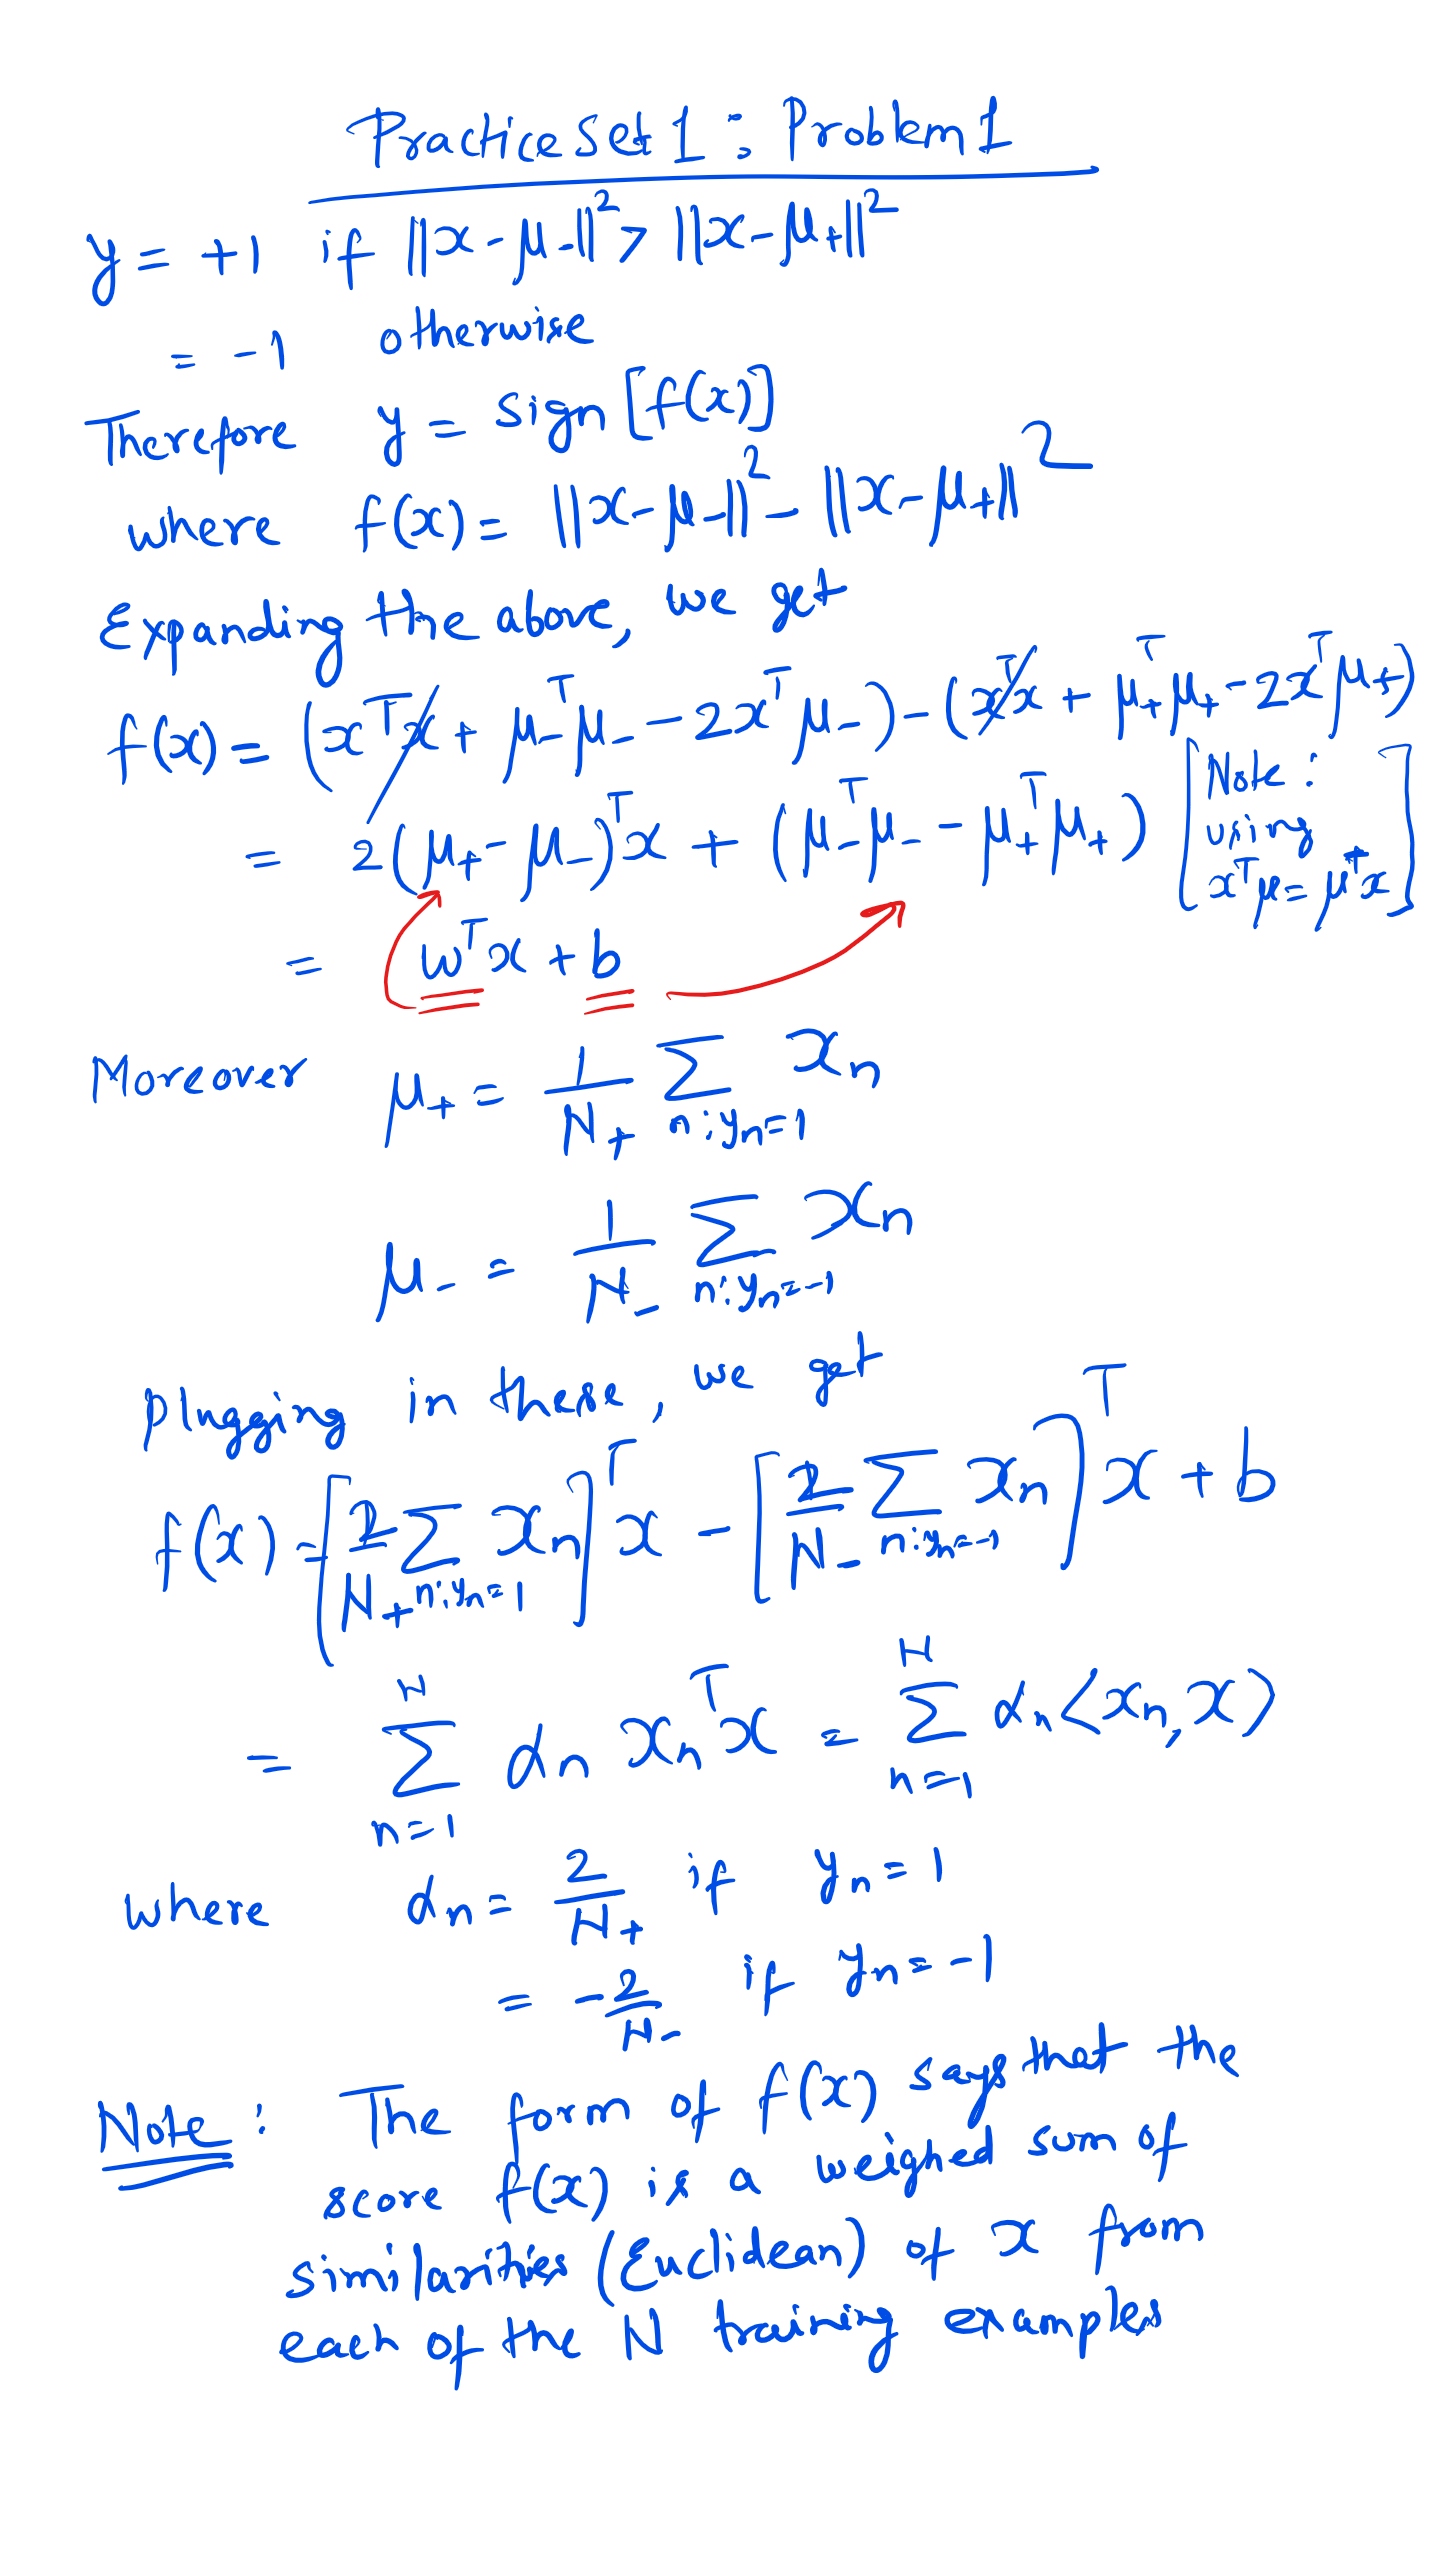 Practice Set 1 : Problem 1
y = +1 if ||x - μ₋||² > ||x - μ₊||²
= -1 otherwise
Therefore y = sign [f(x)]
where f(x) = ||x - μ₋||² - ||x - μ₊||²
Expanding the above, we get
f(x) = (xᵀx + μ₋ᵀμ₋ - 2xᵀμ₋) - (xᵀx + μ₊ᵀμ₊ - 2xᵀμ₊)
= 2(μ₊ - μ₋)ᵀx + (μ₋ᵀμ₋ - μ₊ᵀμ₊)
[Note :
using
xᵀμ = μᵀx]
= wᵀx + b
Moreover μ₊ = 1/N₊ Σ_{n:yₙ=1} xₙ
μ₋ = 1/N₋ Σ_{n:yₙ=-1} xₙ
Plugging in these, we get
f(x) = [2/N₊ Σ_{n:yₙ=1} xₙ]ᵀ x - [2/N₋ Σ_{n:yₙ=-1} xₙ]ᵀ x + b
= Σ_{n=1}^{N} αₙ xₙᵀx = Σ_{n=1}^{N} αₙ⟨xₙ, x⟩
where αₙ = 2/N₊ if yₙ = 1
= -2/N₋ if yₙ = -1
Note : The form of f(x) says that the
score f(x) is a weighed sum of
similarities (Euclidean) of x from
each of the N training examples